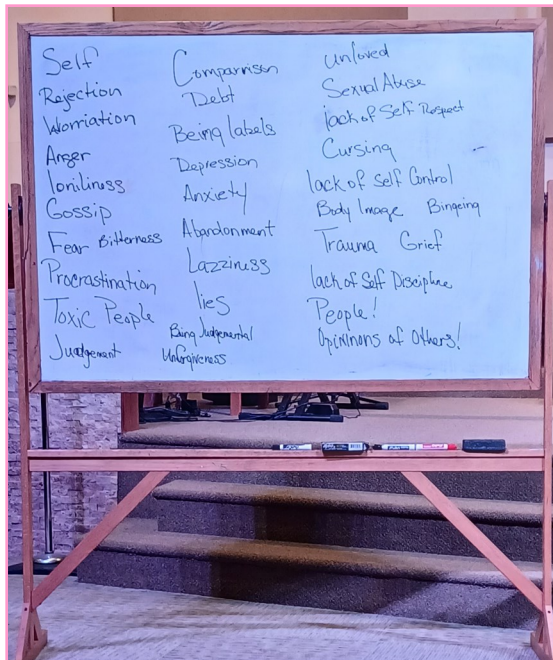 Self
Rejection
Worriation
Anger
loniliness
Gossip
Fear Bitterness
Procrastination
Toxic People
Juadgement
Comparrison
Debt
Being labels
Depression
Anxiety
Abandonment
Lazziness
lies
Being Judgemental
Unforgiveness
unloved
Sexual Abuse
lack of Self Respect
Cursing
lack of Self Control
Body Image Bingeing
Trauma Grief
lack of Self Discipline
People!
Opininons of Others!